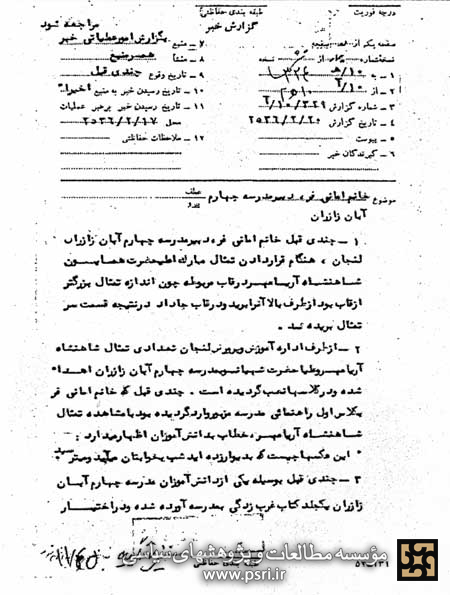 درجه فوریت
طبقه بندی حفاظتی
گزارش خبر
مراجعه شود
بگزارش امور عملیاتی خبر
صفحه یکم از
نسخه شماره از نسخه
۱ - به ۳۲۴
۲ - از
۳ - شماره گزارش ۲/۱۰/۳۲۹
۴ - تاریخ گزارش ۲۵۳۶/۲/۲۰
۵ - پیوست
۶ - گیرندگان خبر
۷ - منبع
۸ - منشأ همسر منبع
۹ - تاریخ وقوع چندی قبل
۱۰ - تاریخ رسیدن خبر به منبع اخیرا
۱۱ - تاریخ رسیدن خبر برهبر عملیات
محل ۲۵۳۶/۲/۱۷
۱۲ - ملاحظات حفاظتی
موضوع خانم امانی فر دبیر مدرسه چهارم
آبان زازران
عطف
پیرو
۱ - چندی قبل خانم امانی فر دبیر مدرسه چهارم آبان زازران
لنجان ، هنگام قراردادن تمثال مبارک اعلیحضرت همایون
شاهنشاه آریامهر در قاب مربوطه چون اندازه تمثال بزرگتر
از قاب بود از طرف بالا آنرا برید و در قاب جا داد در نتیجه قسمت سر
تمثال بریده شد .
۲ - از طرف اداره آموزش و پرورش لنجان تعدادی تمثال شاهنشاه
آریامهر و علیاحضرت شهبانو بمدرسه چهارم آبان زازران اهداء
شده و در کلاسها نصب گردیده است . چندی قبل که خانم امانی فر
بکلاس اول راهنمائی مدرسه مزبور وارد گردیده بود با مشاهده تمثال
شاهنشاه آریامهر ، خطاب بدانش آموزان اظهار میدارد :
" این عکسها چیست که بدیوار زده اید شب بخوابتان میآید و میترسید "
۳ - چندی قبل بوسیله یکی از دانش آموزان مدرسه چهارم آبان
زازران یکجلد کتاب غرب زدگی بمدرسه آورده شده و در اختیار
طبقه بندی حفاظتی
مؤسسه مطالعات و پژوهشهای سیاسی
www.psri.ir